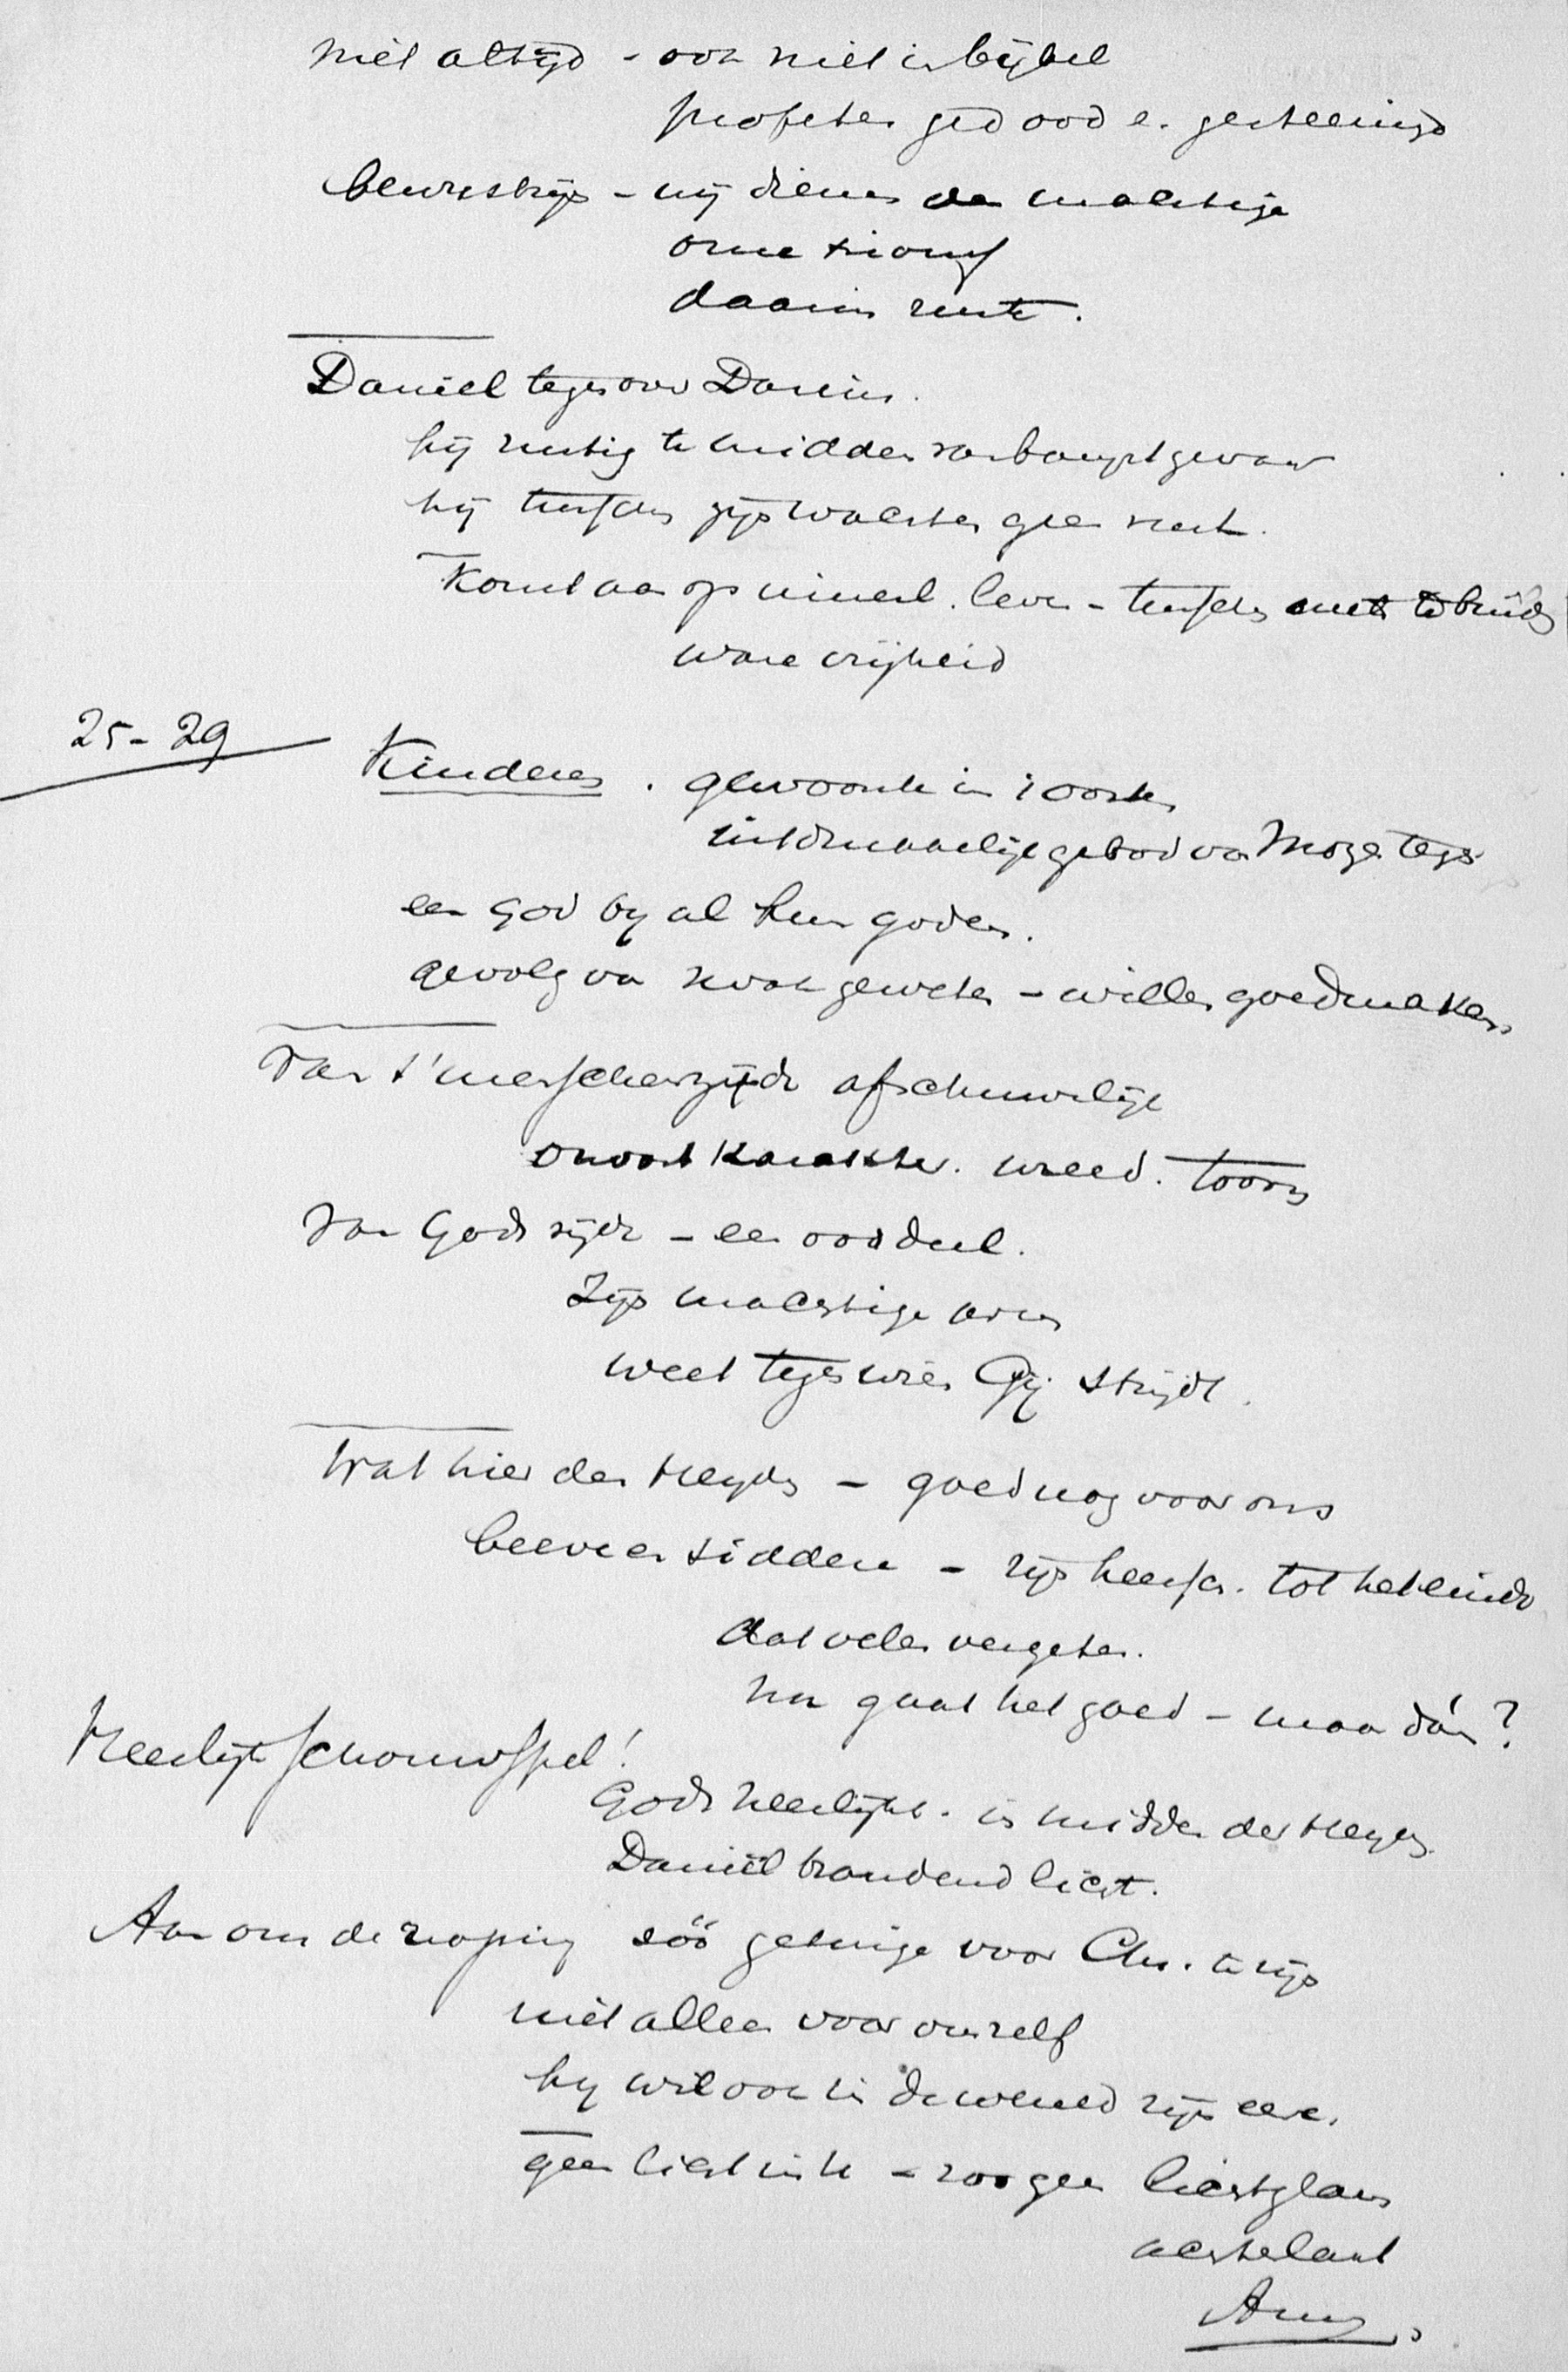 niet altijd - ook niet in bijbel
profeten gedood e. gesteenigd
bewustzijn - wij dienen den machtige
onze triomf
daarin rust.
Daniel tegenover Darius.
hij rustig te midden van
hij tusschen zijn wachten geen rust.
Komt aan op innerl. leven - tusschen
ware vrijheid
25-29
Kinderen. gewoonte in 't oosten
uitdrukkelijk gebod van Mozes tegen
een God bij al hun goden.
gevolg van geweten - willen goedmaken
Van 's menschenzijde afschuwelijk
onvast karakter. wreed. toorn
Van Gods zijde - een oordeel.
Zijn machtige arm
weet tegen wien Gij strijdt.
Wat hier den Heyden - goed nog voor ons
beeven en sidderen - zijn heersch. tot het einde
dat velen vergeten.
Nu gaat het goed - maar dán?
Heerlijk schouwspel!
Gods heerlijkh. in midden der Heyden
Daniël brandend licht.
Aan ons de roeping zóó getuige voor Chr. te zijn
niet alleen voor onszelf
hij wil ook in de wereld zijn eere.
geen licht - zoo geen lichtglans
achterlaat
Amen.